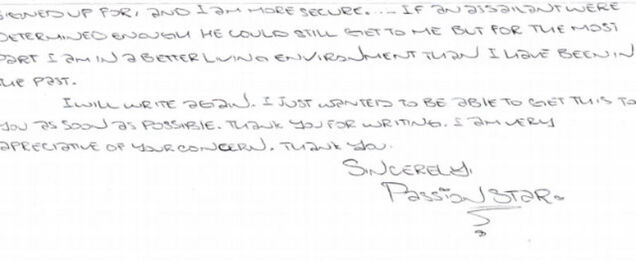 SIGNED UP FOR, AND I AM MORE SECURE..... IF AN ASSAILANT WERE
DETERMINED ENOUGH HE COULD STILL GET TO ME BUT FOR THE MOST
PART I AM IN A BETTER LIVING ENVIRONMENT THAN I HAVE BEEN IN
THE PAST.
I WILL WRITE AGAIN. I JUST WANTED TO BE ABLE TO GET THIS TO
YOU AS SOON AS POSSIBLE. THANK YOU FOR WRITING. I AM VERY
APRECIATIVE OF YOUR CONCERN. THANK YOU.
SINCERELY,
PASSION STAR.